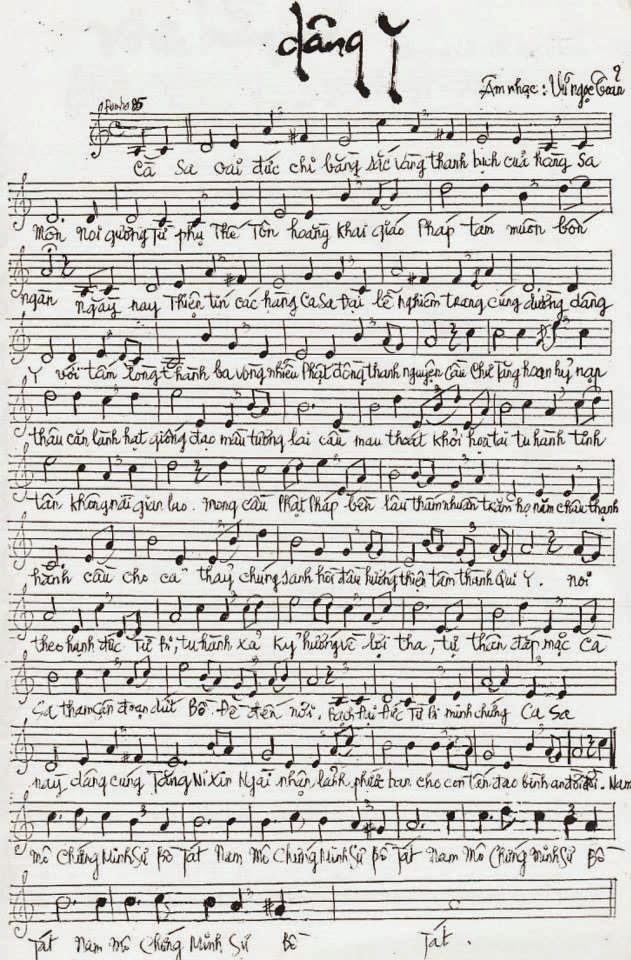 dâng y
Âm nhạc : Vũ ngọc Toản
85
Cà Sa oai đức chỉ bằng sắc vàng thanh bịch của hàng Sa
Môn Noi gương Từ phụ Thế Tôn hoằng khai giáo Pháp tám muôn bốn
ngàn ngày nay Thiện tín các hàng CaSa Đại lễ nghiêm trang cúng dường dâng
Y với tâm lòng thành ba vòng nhiễu Phật đồng thanh nguyện cầu Chư Tăng hoan hỷ nạp
thâu căn lành hạt giống đạo mầu tương lai cầu mau thoát khỏi họa tai tu hành tinh
tấn không nài gian lao . mong cầu Phật Pháp bền lâu thấm nhuần trăm họ năm châu thạnh
hành cầu cho cả thảy chúng sanh hồi đầu hướng thiện tâm thành Qui Y . noi
theo hạnh đức Từ Bi , tu hành xả kỷ hướng về lợi tha , tự thân đắp mặc Cà
Sa tham sân đoạn dứt Bồ Đề đến nơi . Bạch Đại Đức Từ Bi minh chứng Ca Sa
này dâng cúng Tăng Ni Xin Ngài nhận lãnh phước ban cho con tến đạo bình an đời đời . Nam
mô Chứng Minh Sư Bồ Tát Nam Mô Chứng Minh Sư Bồ Tát Nam Mô Chứng Minh Sư Bồ
Tát Nam Mô Chứng Minh Sư Bồ Tát .